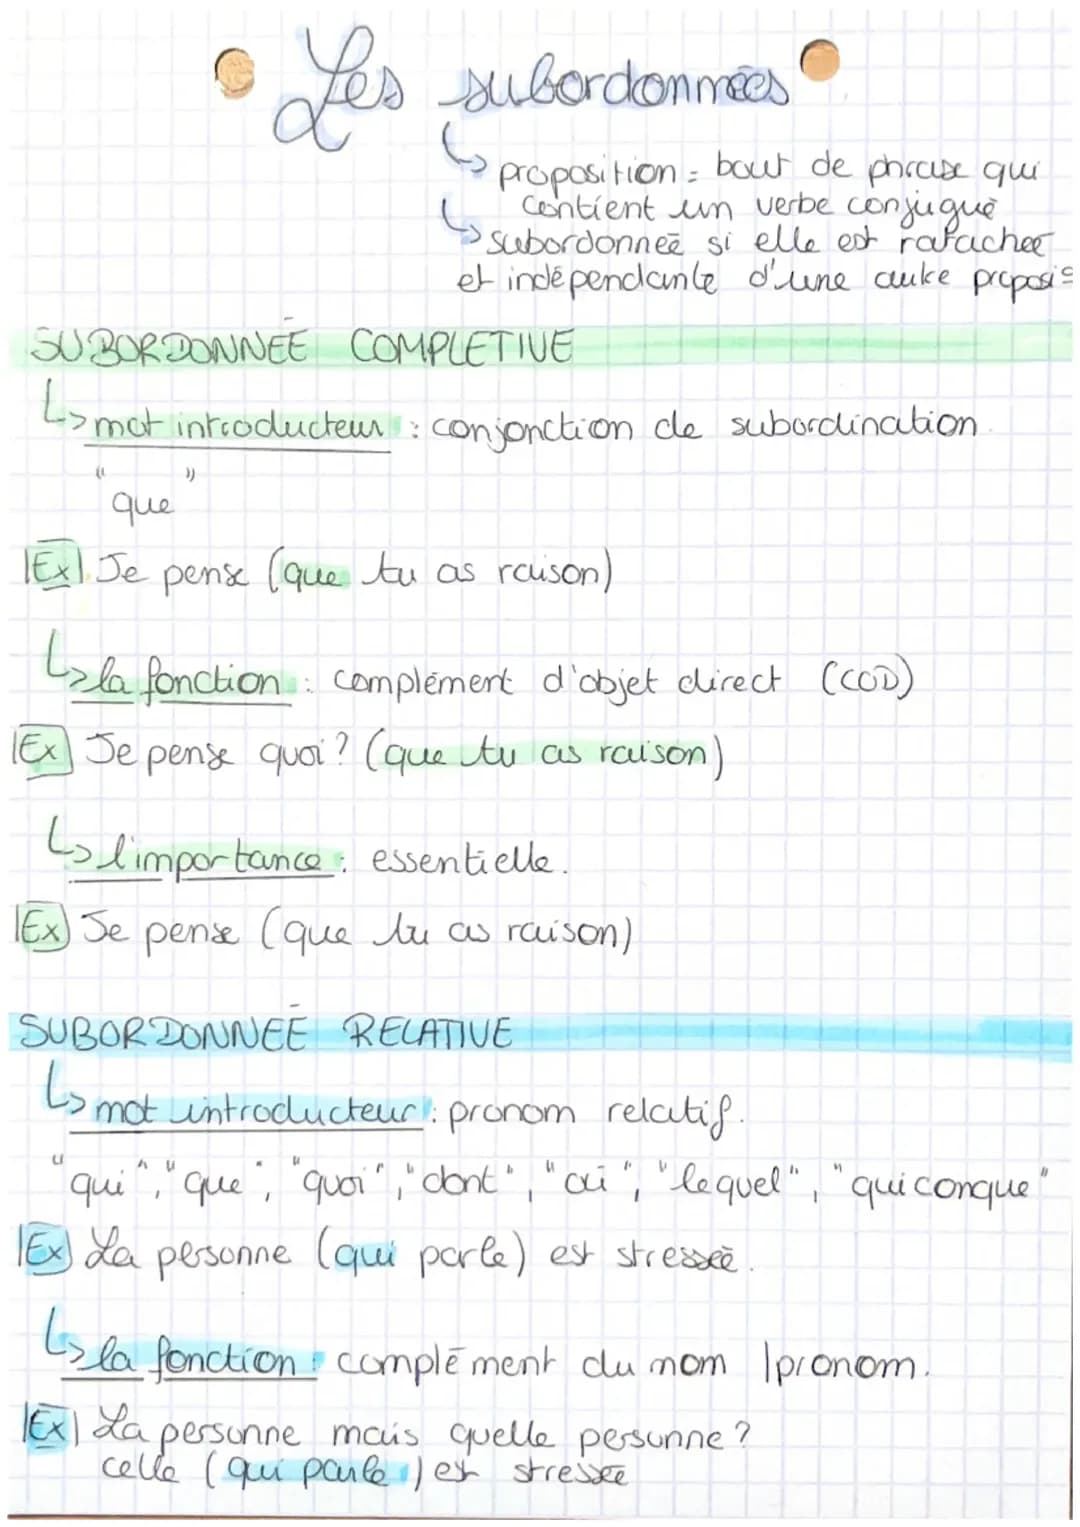 Les subordonnées
↳ proposition = bout de phrase qui
contient un verbe conjugué
↳ subordonneé si elle est ratacheé
et indépendante d'une autre proposi
SUBORDONNEÉ COMPLETIVE
↳ mot introducteur : conjonction de subordination.
"que"
Ex Je pense (que tu as raison)
↳ la fonction : complément d'objet direct (COD)
Ex Je pense quoi? (que tu as raison)
↳ l'importance : essentielle.
Ex Je pense (que tu as raison)
SUBORDONNEÉ RELATIVE
↳ mot introducteur : pronom relatif.
"qui", "que", "quoi", "dont", "où", "lequel", "quiconque"
Ex La personne (qui parle) est stresseé.
↳ la fonction : complément du nom /pronom.
Ex La personne mais quelle personne?
celle (qui parle) est stresseé